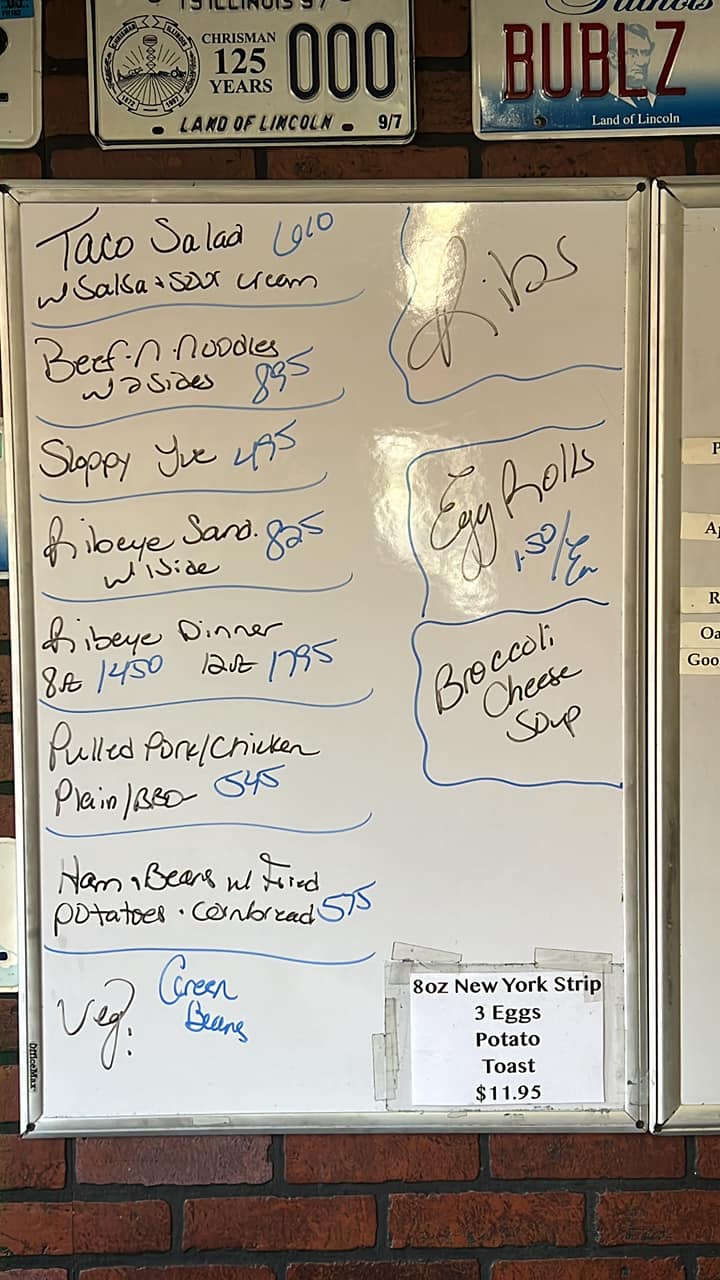 CHRISMAN
125
YEARS
000
LAND OF LINCOLN 9/7
Illinois
BUBLZ
Land of Lincoln
Taco Salad
w Salsa + Sour Cream
Beef-n-noodles
w 2 Sides 895
Sloppy Joe 495
Ribeye Sand. 825
w/ 1 Side
Ribeye Dinner
8oz 1450 12oz 1795
Pulled Pork/Chicken
Plain/BBQ 545
Ham & Beans w/ Fried
potatoes + Cornbread 575
Veg: Green
Beans
Ribs
Egg Rolls
1.50/Ea
Broccoli
Cheese
Soup
8oz New York Strip
3 Eggs
Potato
Toast
$11.95
OfficeMax